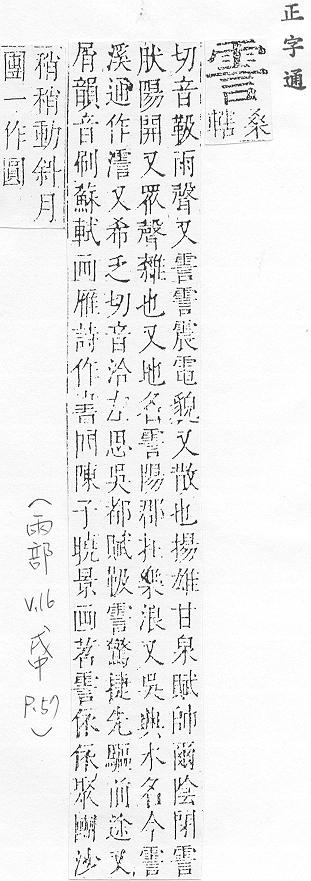 正字通
霅
桑
轄
切音靸雨聲又霅霅震電貌又散也揚雄甘泉賦帥爾陰閉霅
肰陽開又眾聲雜也又地名霅陽郡在樂浪又吳興水名今霅
溪通作澘又希乏切音洽左思吳都賦靸霅驚捷先驅前途又
屑韻音刷蘇軾画雁詩作書問陳子曉景画苕霅依依聚圞沙
稍稍動斜月
團一作圓
(雨部 V.16、戌中 P.57)